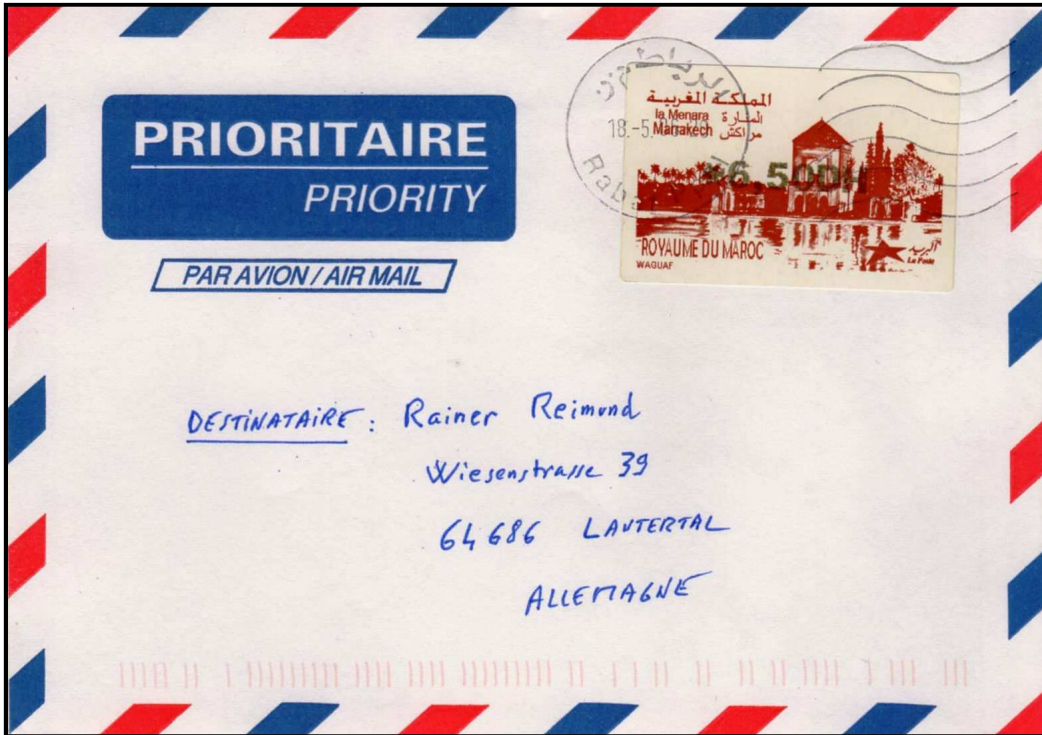 PRIORITAIRE
PRIORITY
PAR AVION / AIR MAIL
المملكة المغربية
la Menara المنارة
Marrakech مراكش
18.-5.
*6,50DH
ROYAUME DU MAROC
WAGUAF
البريد
La Poste
DESTINATAIRE : Rainer Reimund
Wiesenstrasse 39
64686 LAUTERTAL
ALLEMAGNE